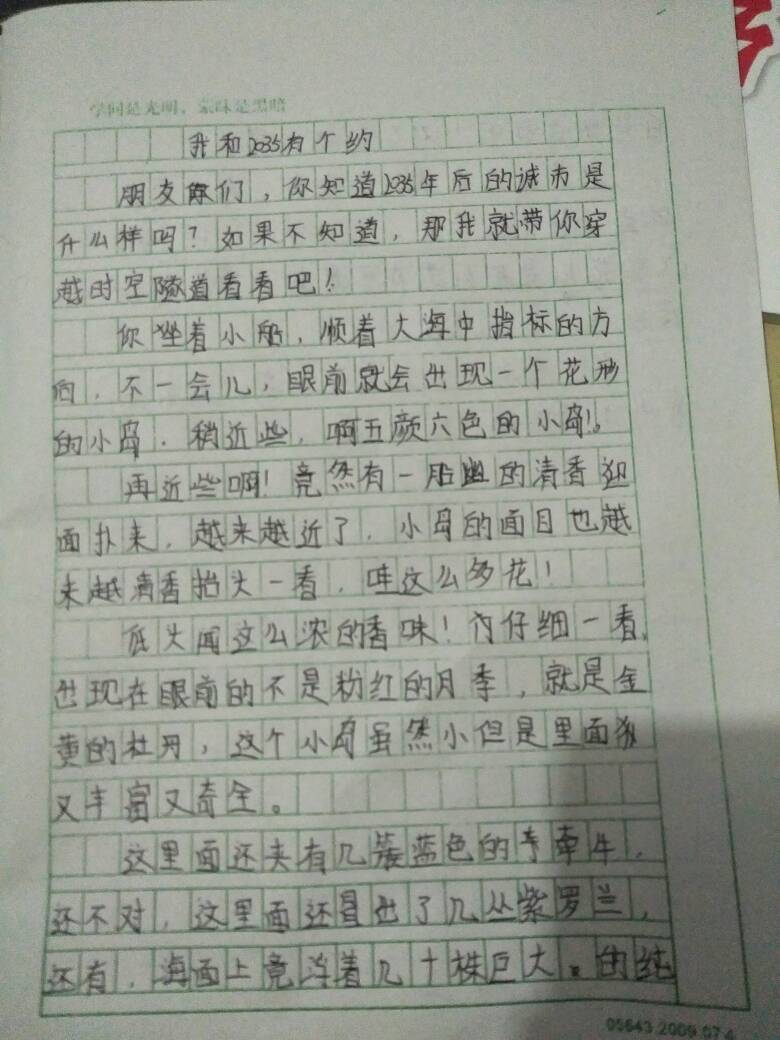 学问是光明，蒙昧是黑暗
我和2035有个约
朋友你们，你知道2035年后的城市是
什么样吗？如果不知道，那我就带你穿
越时空隧道看看吧！
你坐着小船，顺着大海中指标的方
向，不一会儿，眼前就会出现一个花形
的小岛，稍近些，啊五颜六色的小岛！。
再近些啊！竟然有一股幽的清香迎
面扑来，越来越近了，小岛的面目也越
来越清香抬头一看，哇这么多花！
低头闻这么浓的香味！仔细一看，
出现在眼前的不是粉红的月季，就是金
黄的牡丹，这个小岛虽然小但是里面
又丰富又奇全。
这里面还夹有几簇蓝色的牵牛，
还不对，这里面还冒出了几丛紫罗兰，
还有，海面上竟浮着几十株巨大的纯
05643.2009.07.4